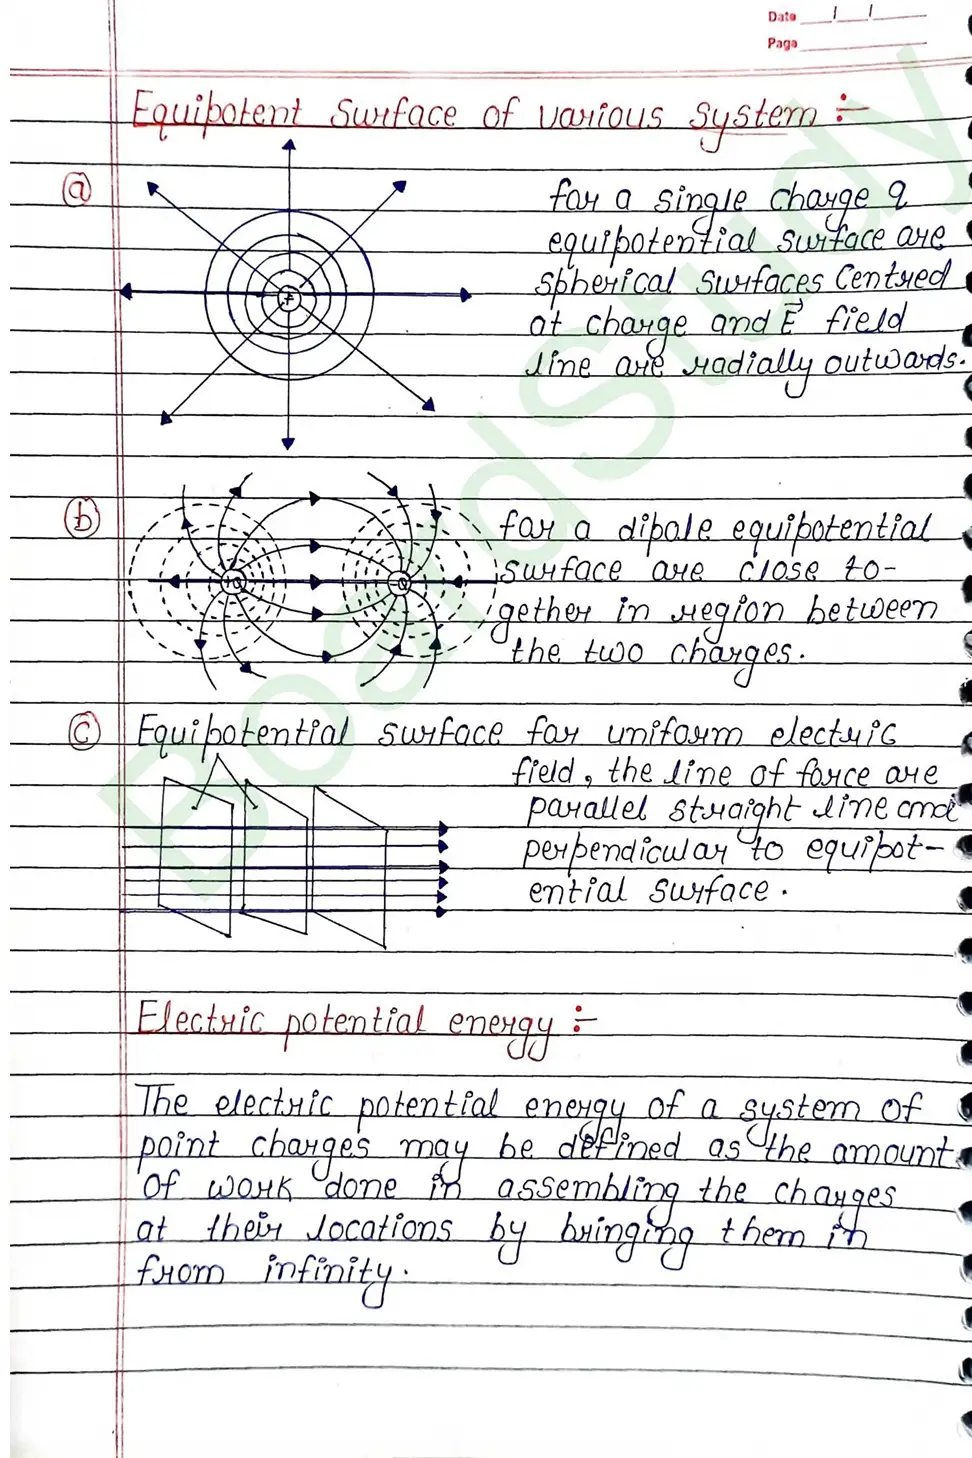 Date
Page
Equipotent surface of various system :-
(a) for a single charge q
equipotential surface are
spherical surfaces centred
at charge and E⃗ field
line are radially outwards.
(b) for a dipole equipotential
surface are close to-
gether in region between
the two charges.
(c) Equipotential surface for uniform electric
field, the line of force are
parallel straight line and
perpendicular to equipot-
ential surface.
Electric potential energy :-
The electric potential energy of a system of
point charges may be defined as the amount
of work done in assembling the charges
at their locations by bringing them in
from infinity.
BoardStudy